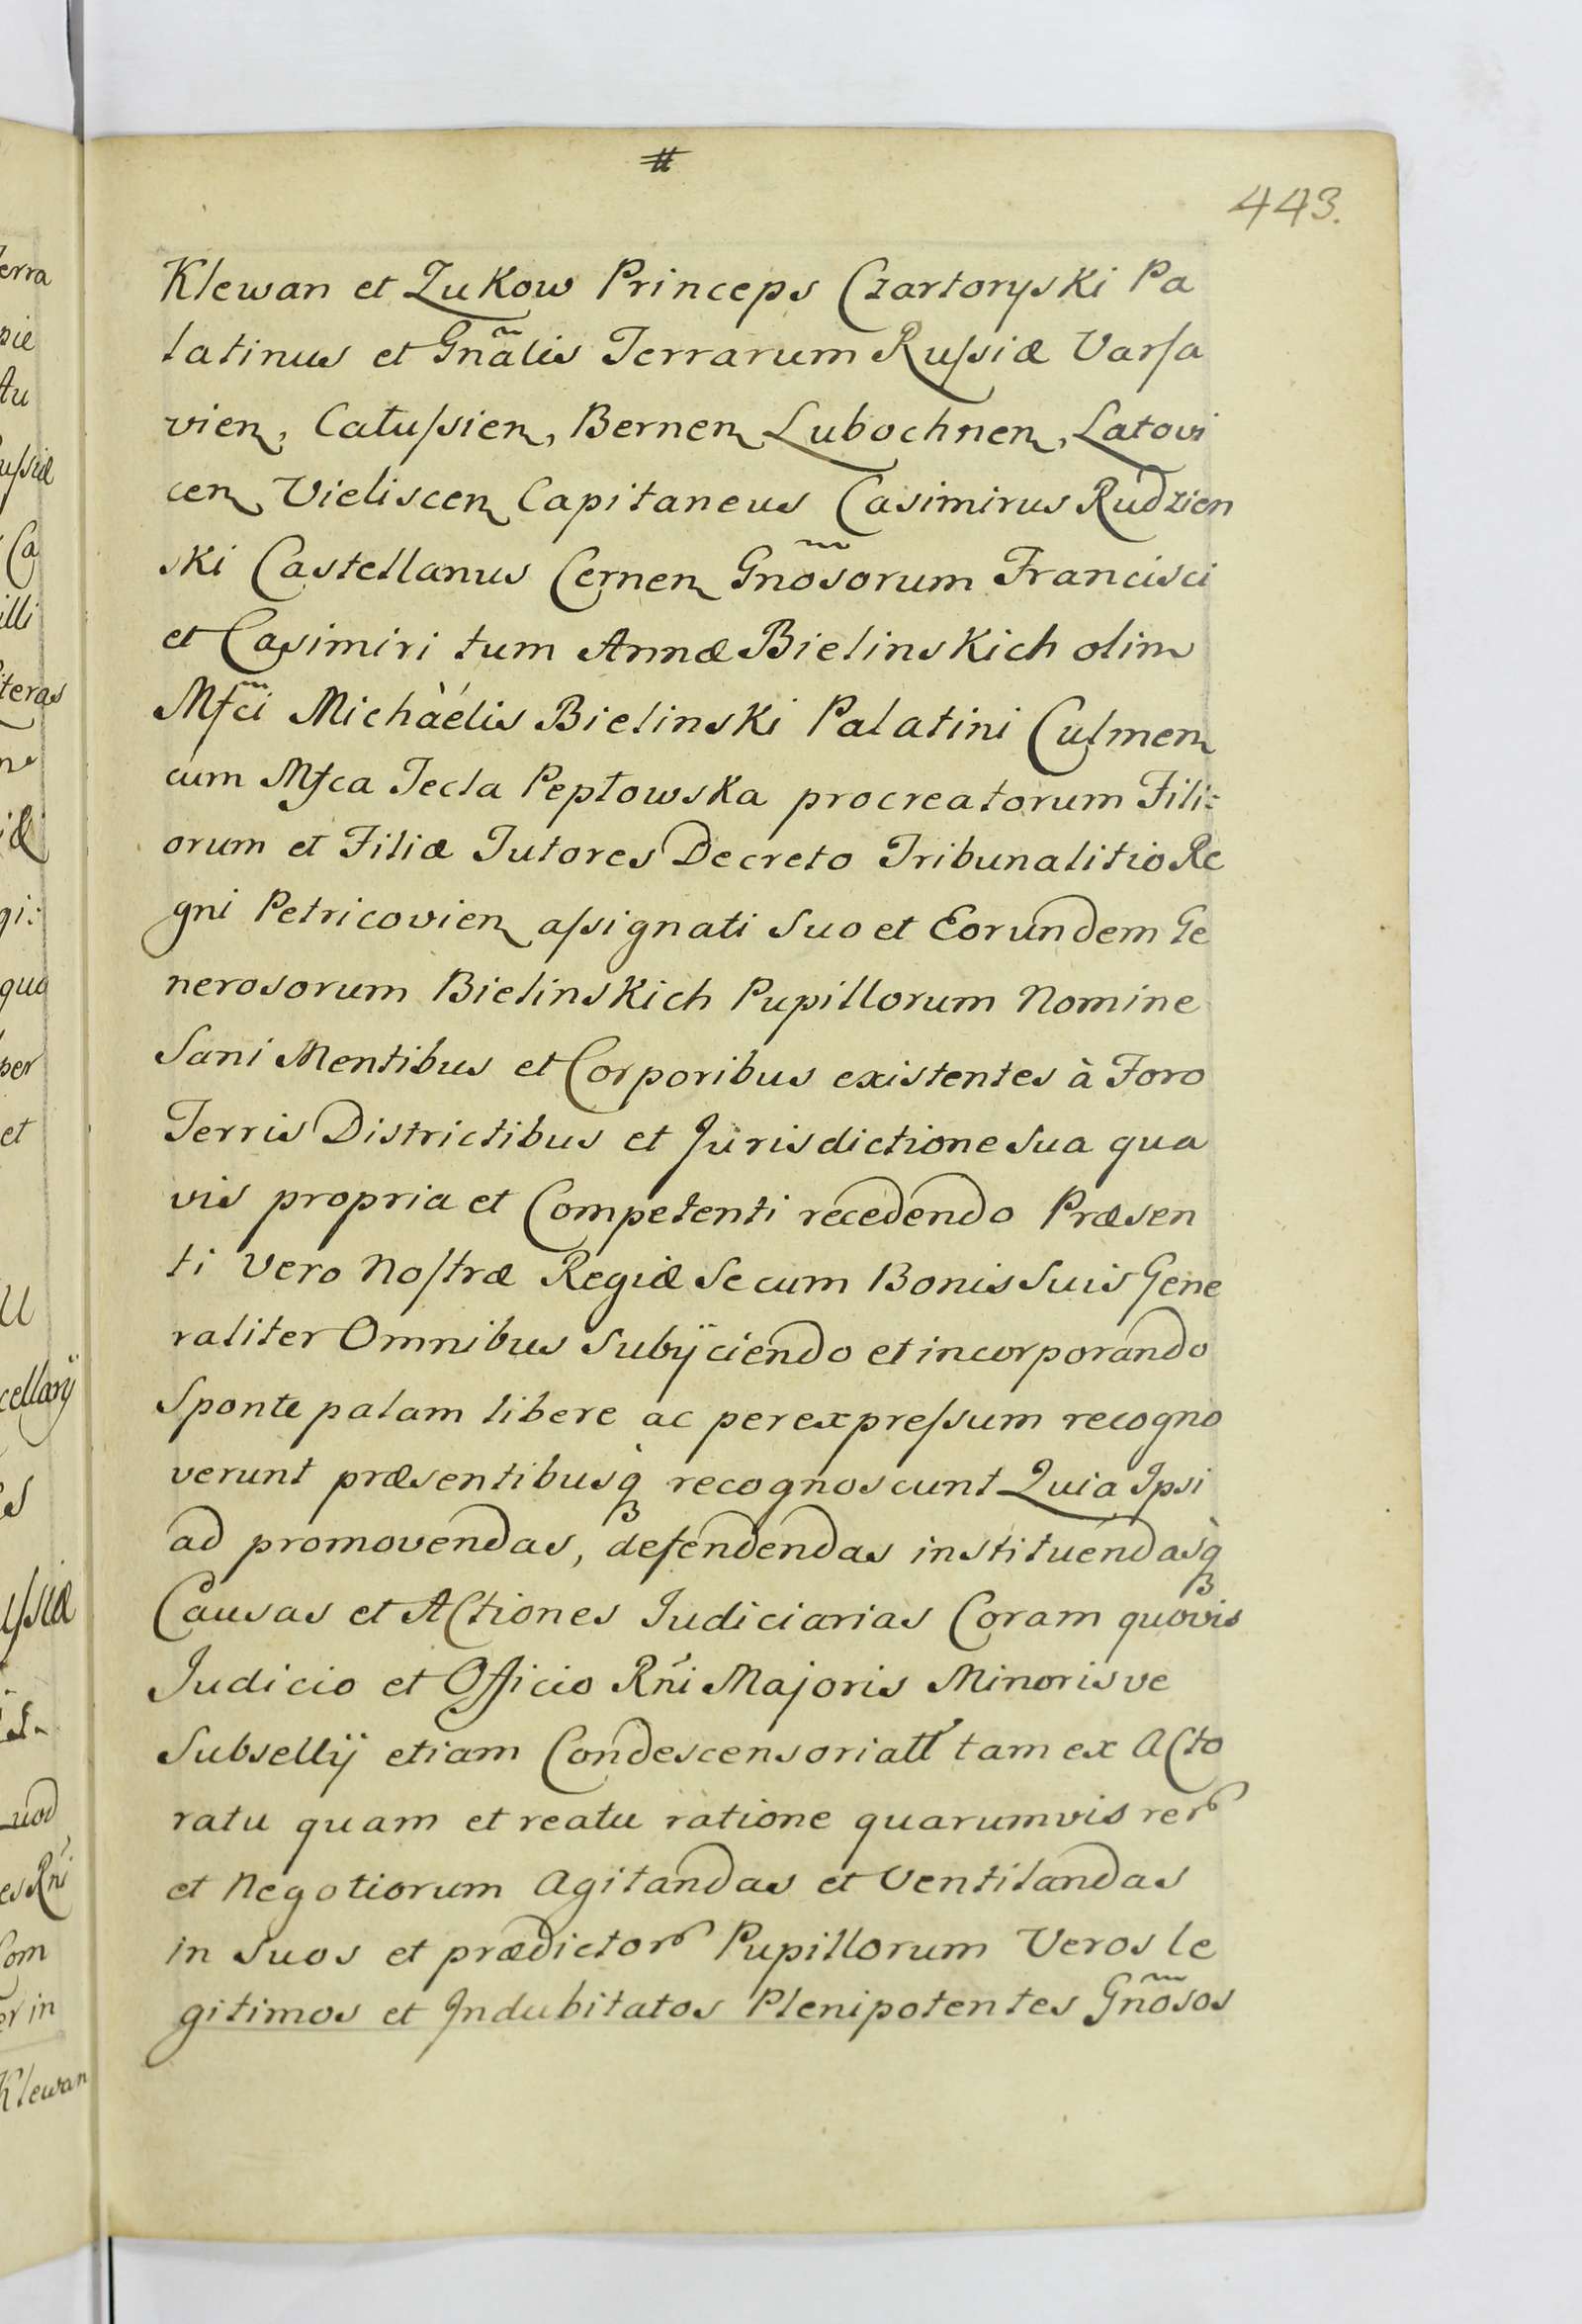 #
443.
Klewan et Zukow Princeps Czartoryski Pa
latinus et Gnãlis Terrarum Russiæ Varsa
vien, Catussien, Bernen Lubochnen, Latovi
cen Vieliscen Capitaneus Casimirus Rudzien
ski Castellanus Cernen Gnõsorum Francisci
et Casimiri tum Annæ Bielinskich olim
Mf̃ci Michàélis Bielinski Palatini Culmen
cum Mfca Tecla Peptowska procreatorum Fili:
orum et Filiæ Tutores Decreto Tribunalitio Re
gni Petricovien assignati Suo et Eorundem Ge
nerosorum Bielinskich Pupillorum Nomine
Sani Mentibus et Corporibus existentes à Foro
Terris Districtibus et Jurisdictione Sua qua
vis propria et Competenti recedendo Præsen
ti Vero Nostræ Regiæ Se cum Bonis Suis Gene
raliter Omnibus Subÿciendo et incorporando
Sponte palam libere ac per expressum recogno
verunt præsentibusq̀ recognoscunt Quia Ipsi
ad promovendas, defendendas instituéndasq̀
Causas et Actiones Judiciarias Coram quovis
Judicio et Officio Rńi Majoris Minorisve
Subsellÿ etiam Condescensoriall' tam ex Acto
ratu quam et reatu ratione quarumvis rer
et Negotiorum Agitandas et Ventilandas
in Suos et prædictor Pupillorum Veros le
gitimos et Indubitatos Plenipotentes Gnõsos
erra
pie
Au
ussiæ
Ca
illi
iteras
quo
per
et
cellarÿ
ussiæ
uod
es Rńi
Com
er in
Klewan